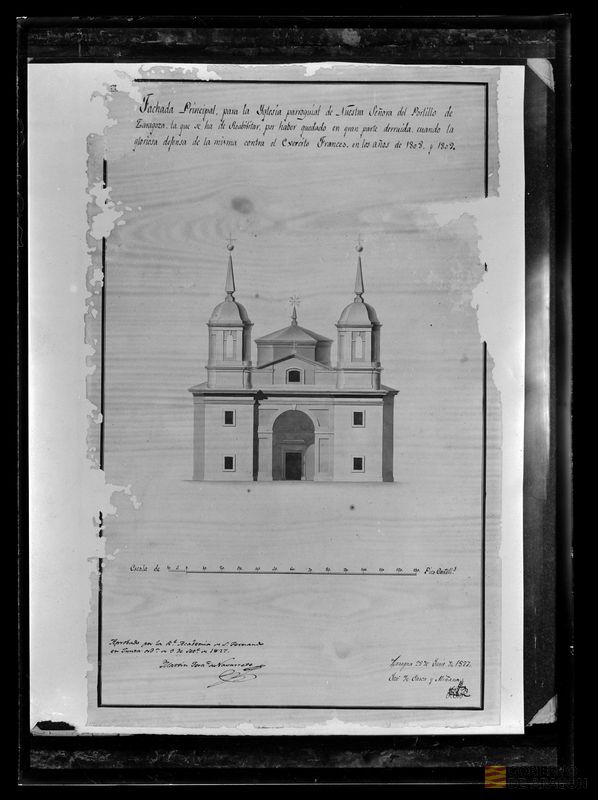 Fachada Principal, para la Yglesia parroquial de Nuestra Señora del Portillo de
Zaragoza, la que se ha de Reabilitar, por haber quedado en gran parte derruida, cuando la
gloriosa defensa de la misma contra el Exercito Frances, en los años de 1808, y 1809.
Escala de
Pies Castells.
Aprobado por la Rl. Academia de S. Fernando
en Junta de 1827.
Martin Fern.z de Navarrete
Zaragoza 28 de de 1827.
José de Yarza y Miñana
GOBIERNO
DE ARAGON